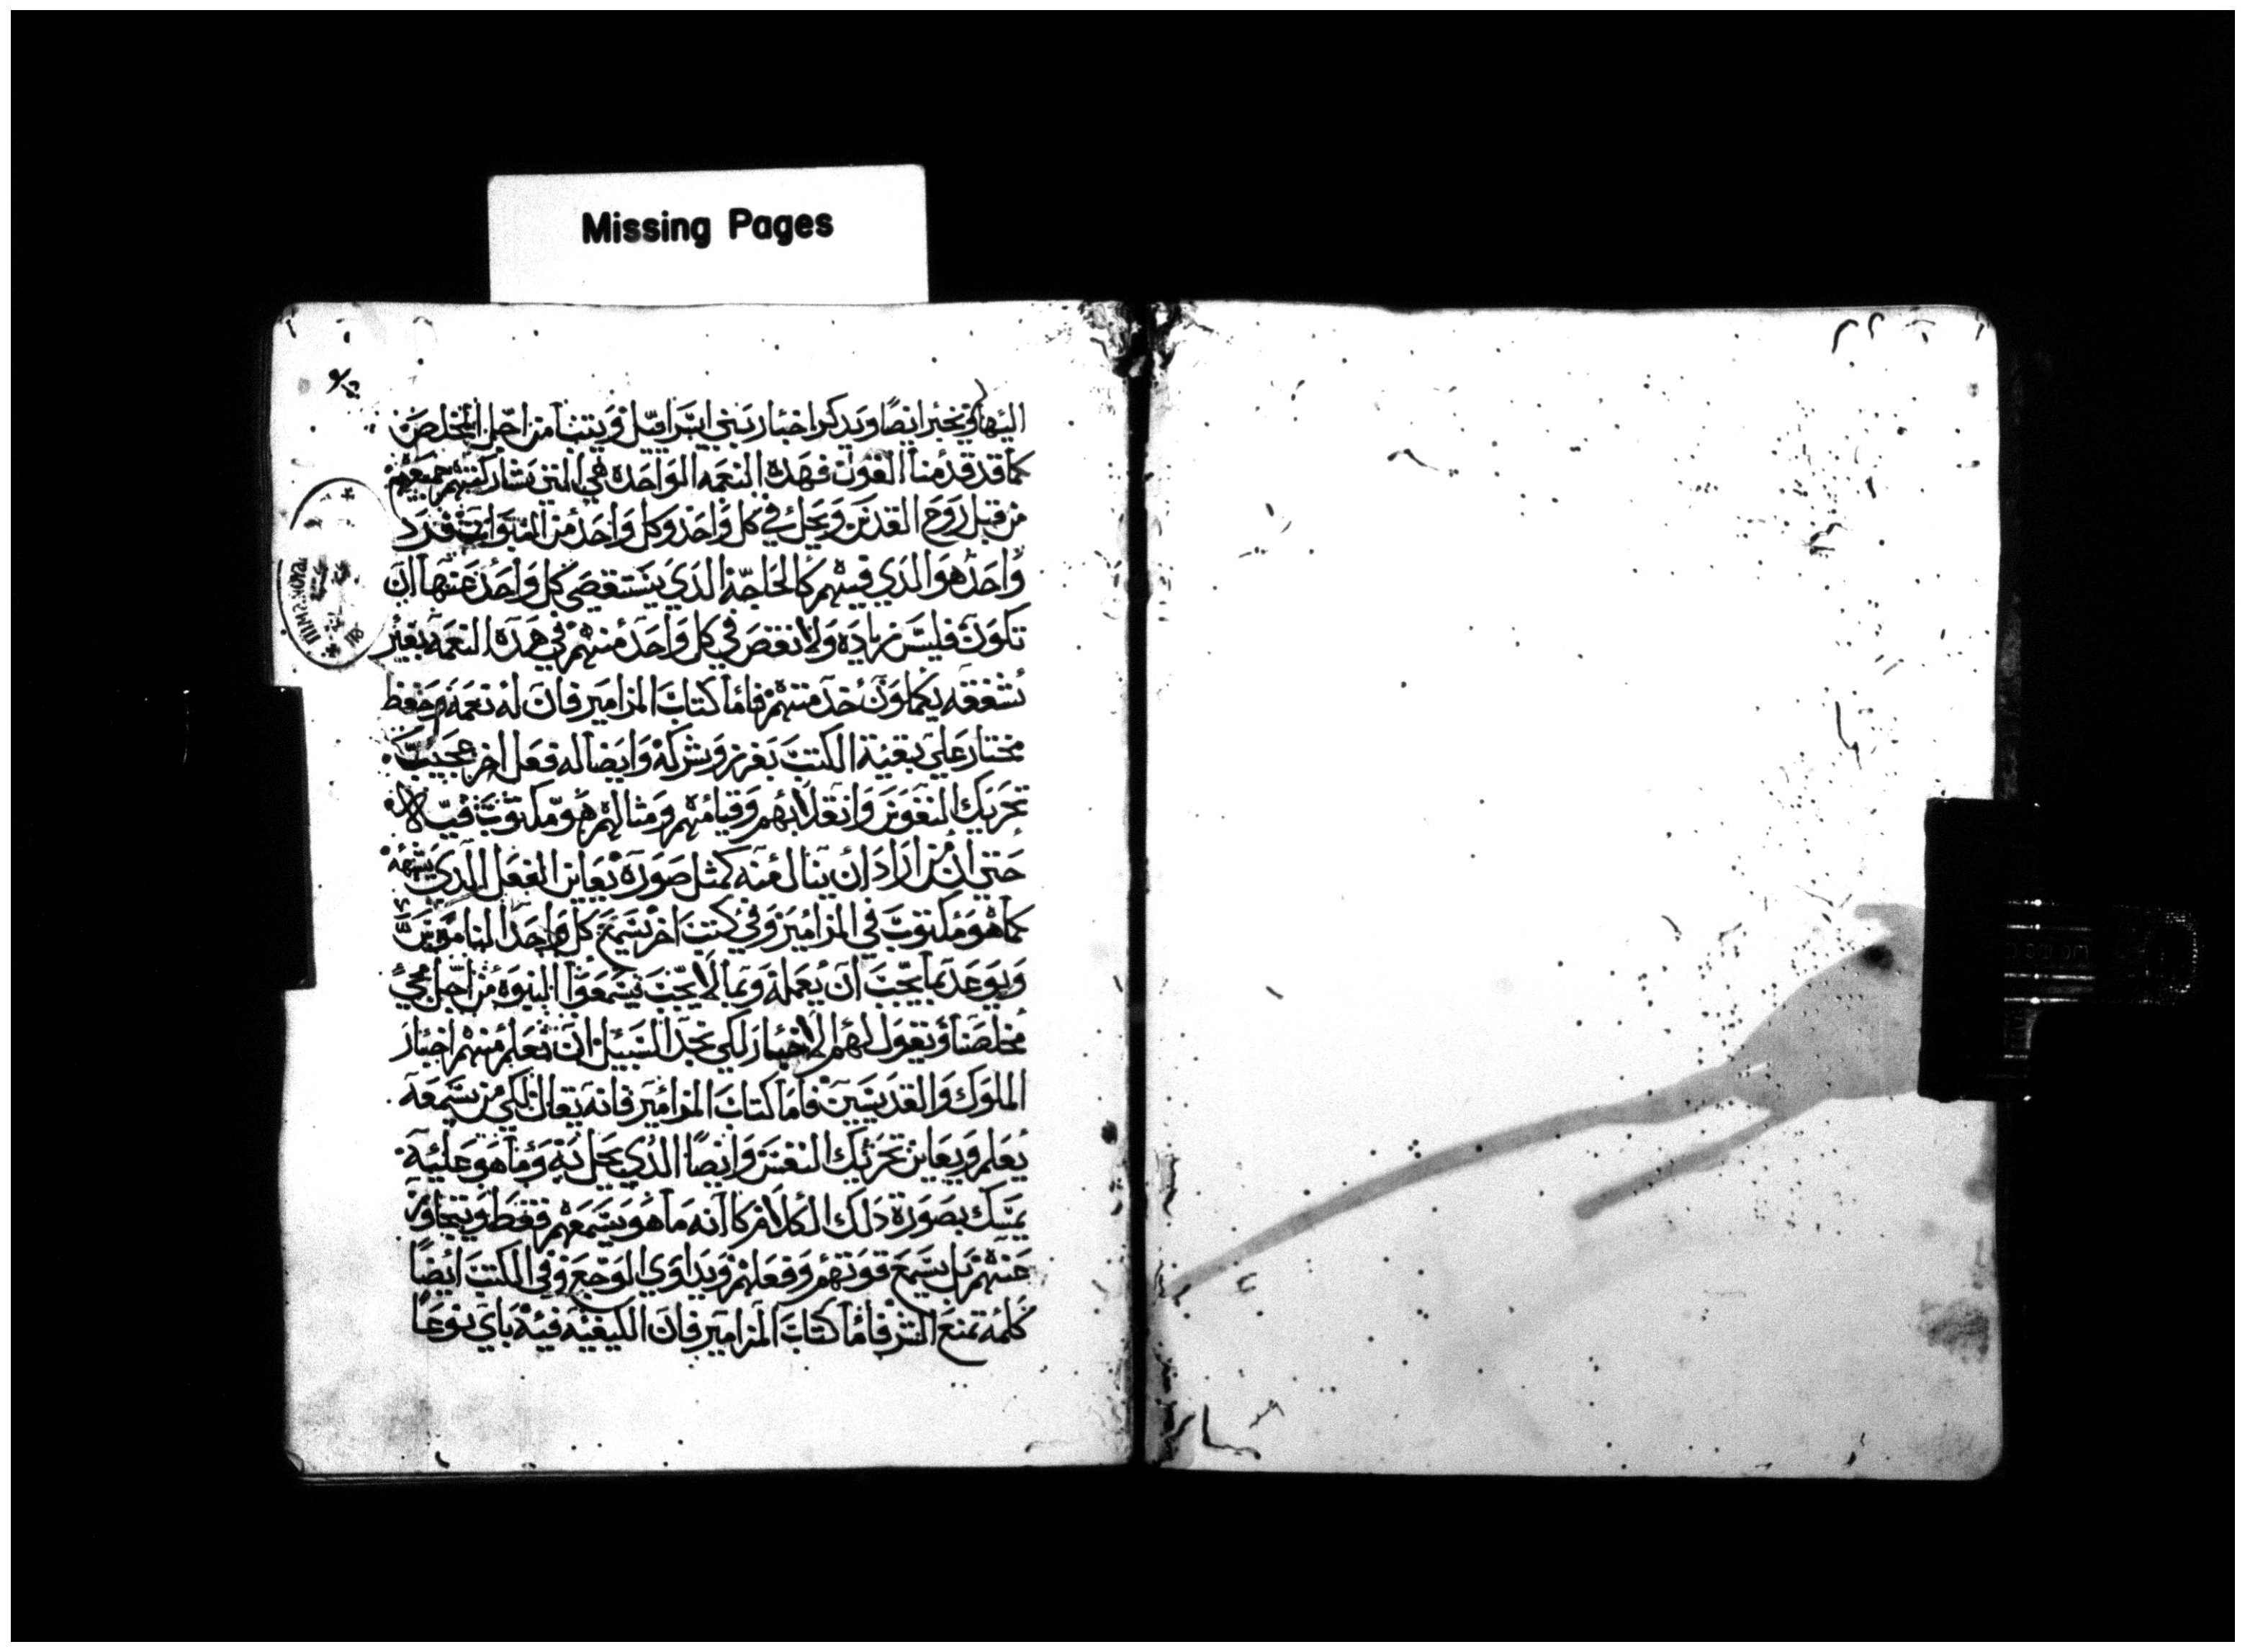 Missing Pages
اليها ويخبر ايضا ويدكر اخبار بني اسراييل ويتنبا من اجل المخلص
كما قد قدمنا القول فهده النعمه الواحده هي التي تشاركتهم جميعهم
من قبل روح القدس ويحل في كل واحد وكل واحد من النبوات فرد
واحد هو الدي فيهم كالحاجة الدي يستقصي كل واحد عنها ان
تكون فليس زياده ولا نقص في كل واحد منهم في هده النعمه بغير
يكملون منهم فاما كتاب المزامير فان له نعمه وحفظ
مختار علي بقية الكتب بفرز وشركه وايضا له فعل اخر عجيب
تحريك النفوس وانقلابهم وقيامتهم ومثالهم هو مكتوب فيه
حتي ان من اراد ان ينال منه كمثل صوره يعاين الفعل الدي يشبهه
كما هو مكتوب في المزامير وفي كتب اخر يسمع كل واحد الناموس
ويوعد بما يجب ان يعمله وبما لا يجب يسمعوا النبوه من اجل مجي
مخلصنا ويقول لهم الاخبار لكي تجد السبيل ان تعلم منهم اخبار
الملوك والقديسين فاما كتاب المزامير فانه يقال لكي من يسمعه
يعلم ويعاين تحريك النفس وايضا الدي يحل به وما هو عليه
يمسك بصورة دلك الكلام كانه ما هو يسمعهم فقط ويتجاوز
عنهم بل يسمع قوتهم وفعلهم ويداوي الوجع وفي الكتب ايضا
كلمه تمنع الشر فاما كتاب المزامير فان الكيفيه فيه باي نوعا